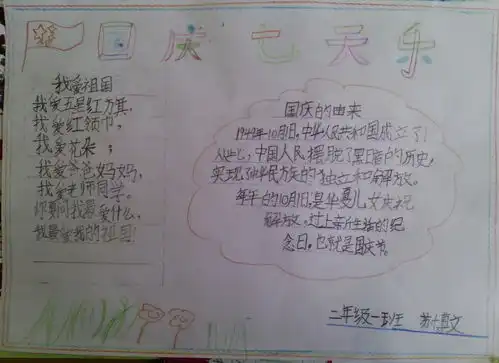 国庆七天乐
我爱祖国
我爱五星红旗,
我爱红领巾,
我爱花朵;
我爱爸爸妈妈,
我爱老师同学。
你要问我最爱什么,
我最爱我的祖国!
国庆的由来
1949年10月1日,中华人民共和国成立了!
从此,中国人民摆脱了黑暗的历史,
实现了中华民族的独立和解放。
每年的10月1日是华夏儿女庆祝
解放,过上新生活的纪
念日,也就是国庆节。
二年级一班